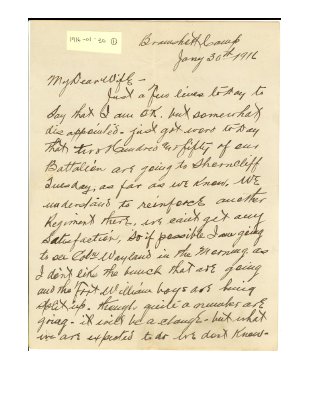 1916-01-30 ①
Bramshott Camp
Jany 30th 1916
My Dear Wife -
Just a few lines to day to
Say that I am OK. but somewhat
disappointed - just got word to day
that two Hundred & fifty of our
Battalion are going to Shorncliff
Tuesday, as far as we know, we
understand to reinforce another
Regiment there, we can't get any
Satisfaction, So if possible I am going
to see Col. Wayland in the Morning as
I don't like the bunch that are going
and the Fort William boys are being
split up. though quite a number are
going - it will be a change - but what
we are expected to do we don't know -